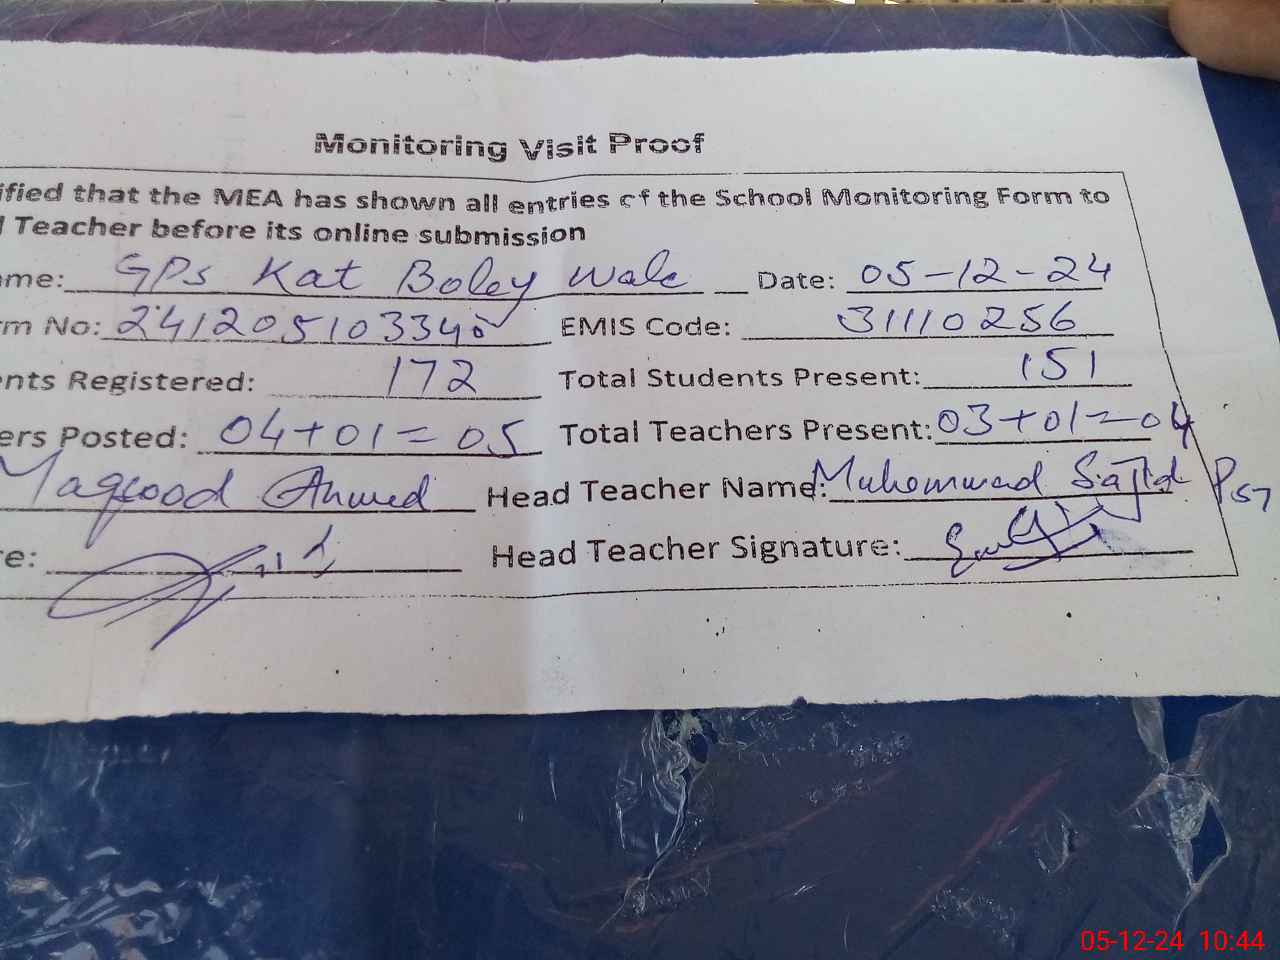 Monitoring Visit Proof
ified that the MEA has shown all entries of the School Monitoring Form to
d Teacher before its online submission
ame: GPS Kat Boley Wale Date: 05-12-24
rm No: 241205103340 EMIS Code: 31110256
ents Registered: 172 Total Students Present: 151
ers Posted: 04+01=05 Total Teachers Present: 03+01=04
Maqsood Ahmed Head Teacher Name: Muhammad Sajid PST
re: Head Teacher Signature:
05-12-24 10:44